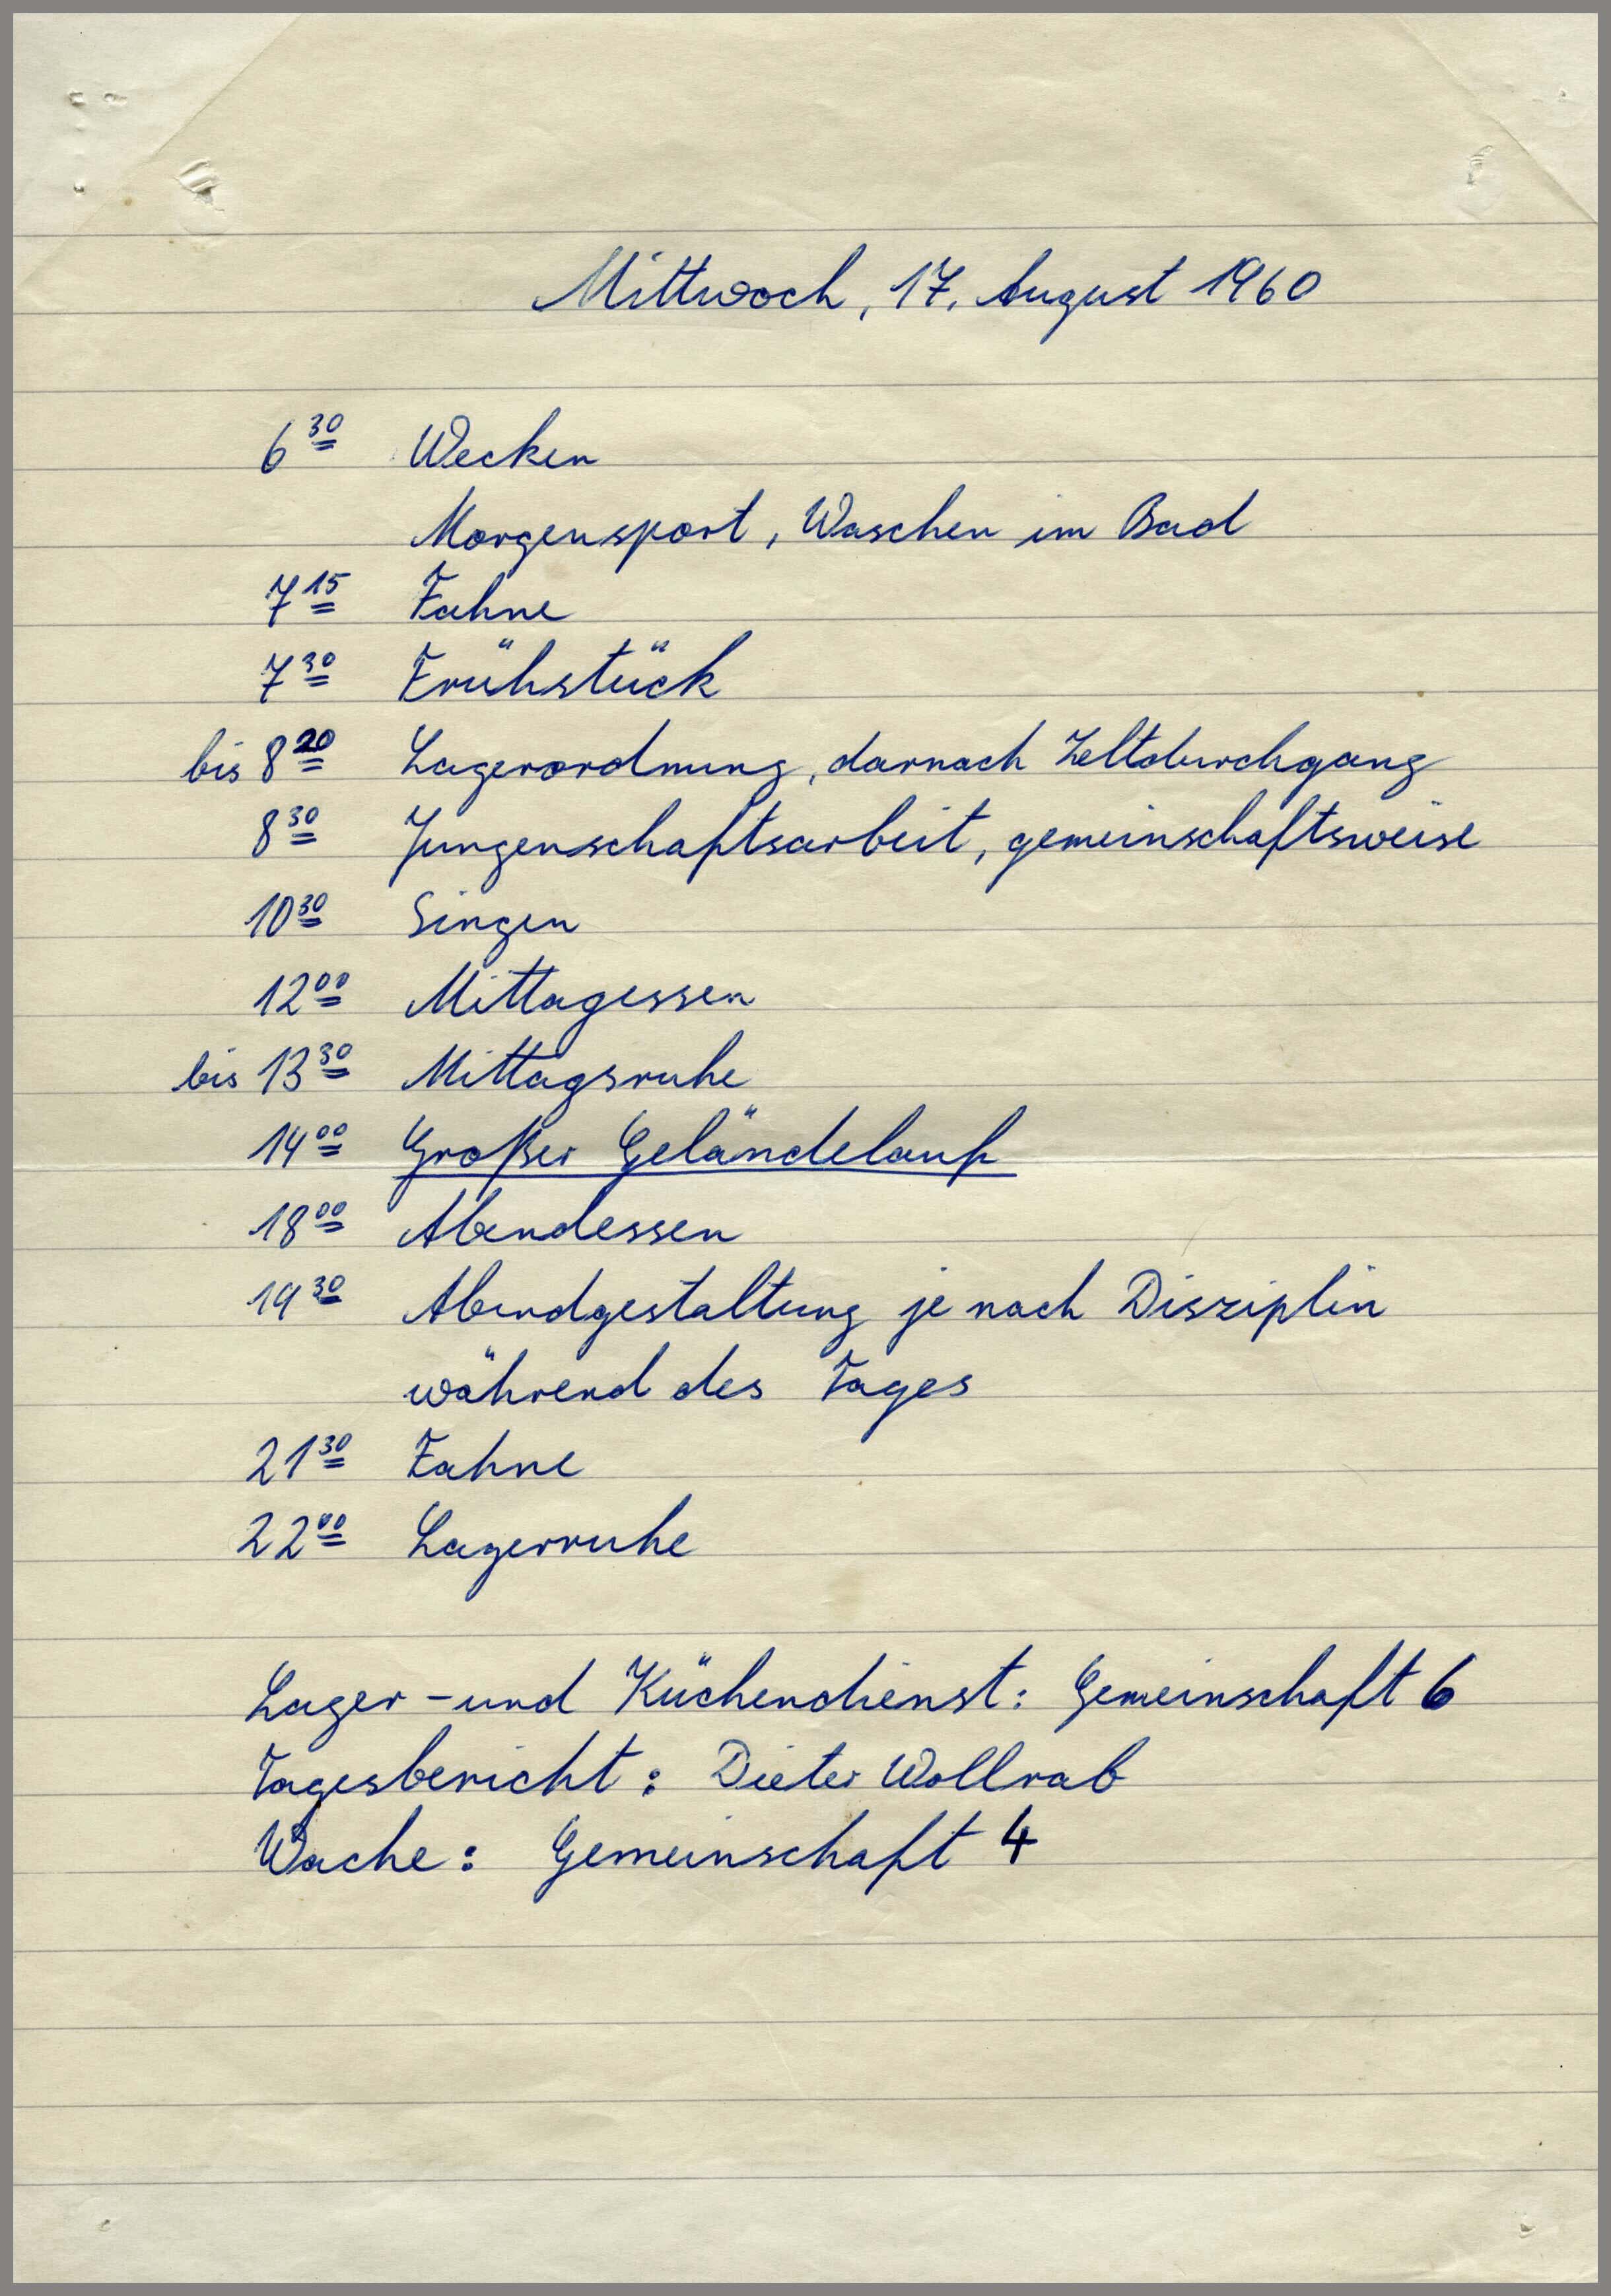 Mittwoch, 17. August 1960
6 30 Wecken
Morgensport, Waschen im Bad
7 15 Fahne
7 30 Frühstück
bis 8 20 Lagerordnung, darnach Zeltdurchgang
8 30 Jungenschaftsarbeit, gemeinschaftsweise
10 30 Singen
12 00 Mittagessen
bis 13 30 Mittagsruhe
14 00 Großer Geländelauf
18 00 Abendessen
19 30 Abendgestaltung je nach Disziplin
während des Tages
21 30 Fahne
22 00 Lagerruhe
Lager - und Küchendienst: Gemeinschaft 6
Tagesbericht: Dieter Wollrab
Wache: Gemeinschaft 4